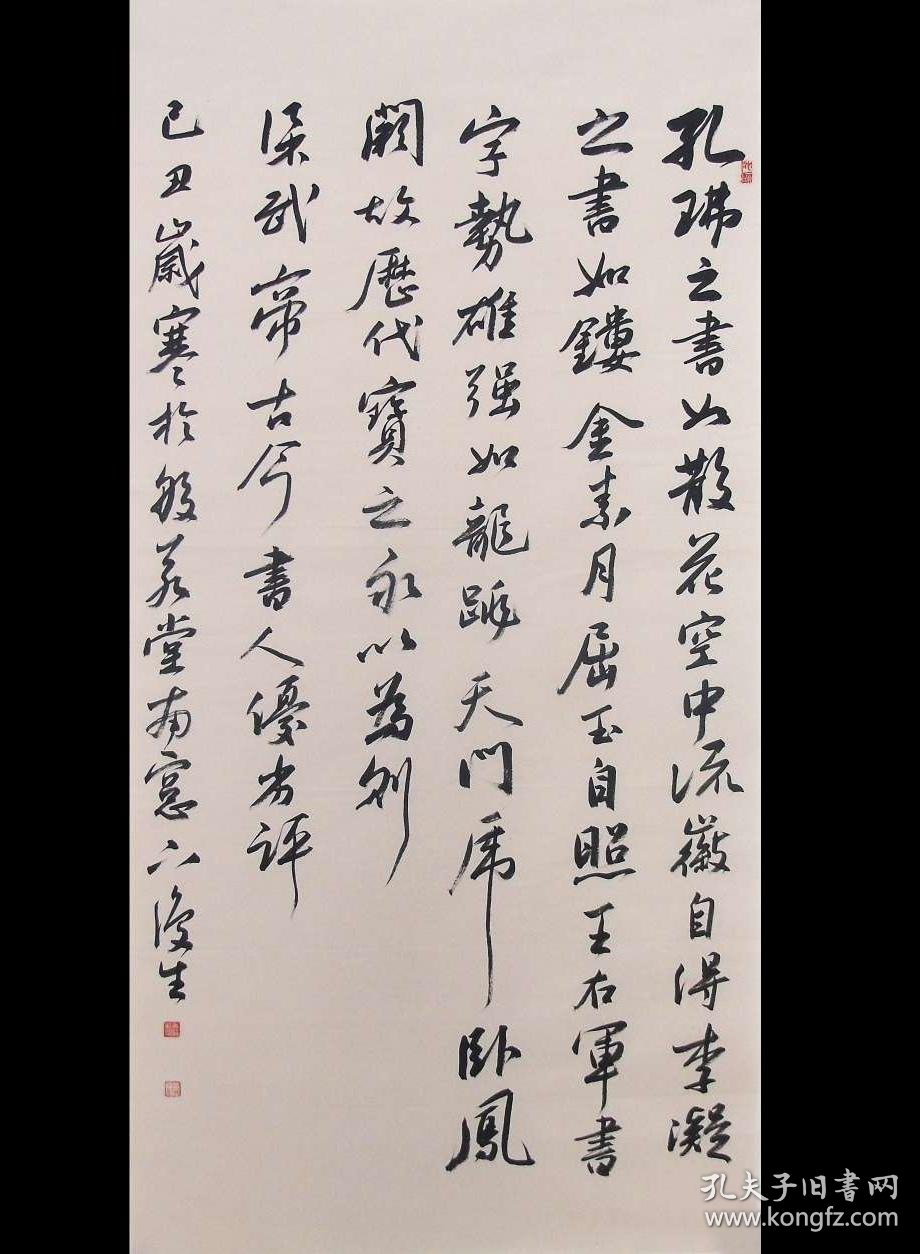 孔琳之書如散花空中流徽自得李凝
之書如鏤金素月屈玉自照王右軍書
字勢雄强如龍跳天門虎卧鳳
闕故歷代寶之永以為訓
梁武帝古今書人優劣評
己丑歲寒於般若堂南窗六渡生
孔夫子旧书网
www.kongfz.com